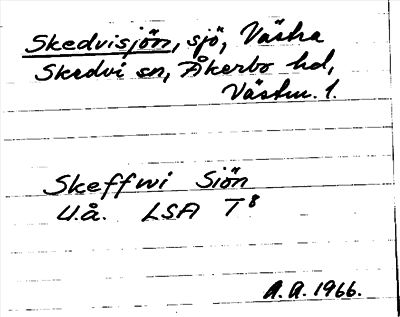 Skedvisjön, sjö, Västra
Skedvi sn, Åkerbo hd,
Västm. l.
Skeffwi Siön
U.å. LSA T8
A.A. 1966.